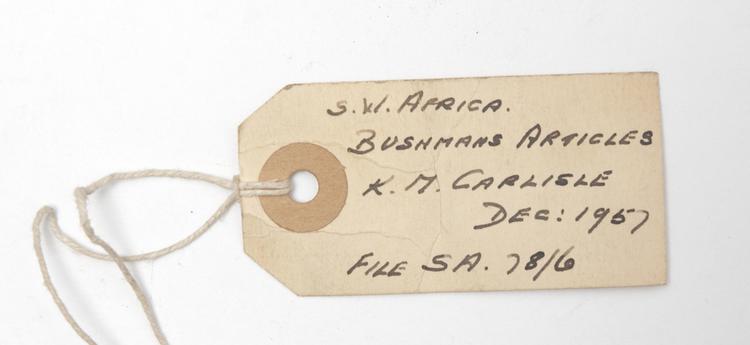 S.W. AFRICA.
BUSHMANS ARTICLES
K. M. CARLISLE
DEC: 1957
FILE SA. 78/6